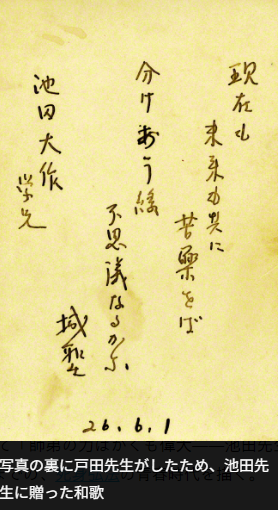 現在も
未来も共に
苦樂をば
分けあう縁
不思議なるかな
城聖
池田大作
学兄
26.6.1
写真の裏に戸田先生がしたため、池田先
生に贈った和歌